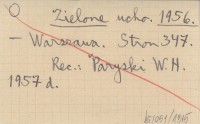 Zielone ucho. 1956.
– Warszawa. Stron 347.
Rec.: Paryski W.H.
1957 d.